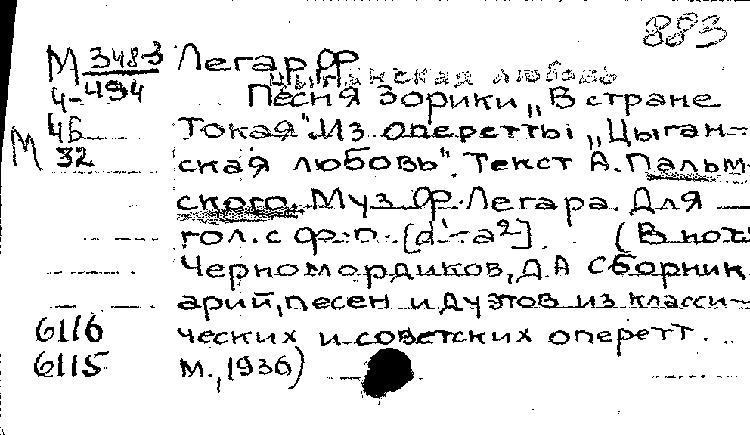 883
М 348-3 Легар Ф
494
Цыганская любовь
4- Песня Зорики „В стране
46 Токая". Из оперетты „Цыган-
М 32 ская любовь". Текст А. Пальм
ского. Муз Ф. Легара. Для
гол. с ф-п. [d'-a²] (В кот:
Черномордиков, Д.А Сборник
арий, песен и дуэтов из класси-
6116 ческих и советских оперетт.
6115 М., 1936)